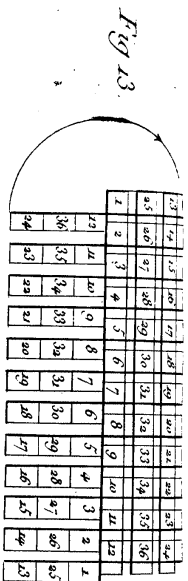 Fig 13.
13 14 15 16 17 18 19 20 21 22 23 24
25 26 27 28 29 30 31 32 33 34 35 36
1 2 3 4 5 6 7 8 9 10 11 12
12 11 10 9 8 7 6 5 4 3 2 1
36 35 34 33 32 31 30 29 28 27 26 25
24 23 22 21 20 19 18 17 16 15 14 13